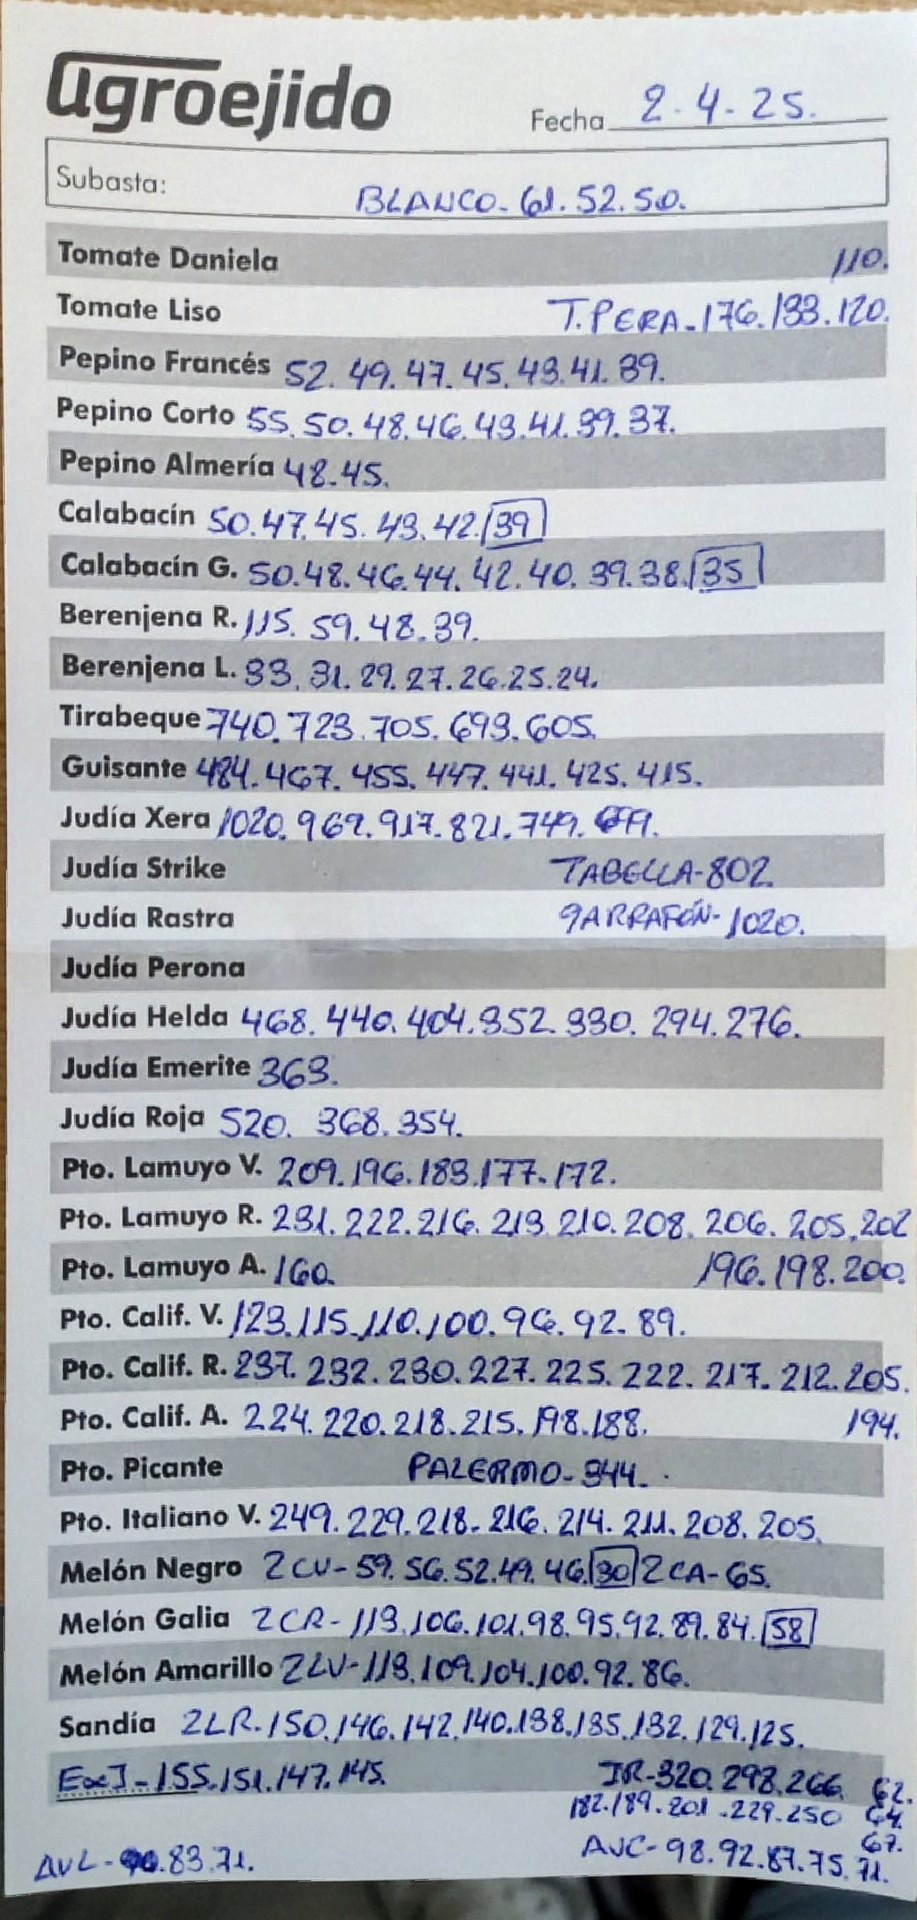 agroejido
Fecha 2.4.25.
Subasta: BLANCO-61.52.50.
Tomate Daniela 110.
Tomate Liso T.PERA-176.133.120.
Pepino Francés 52.49.47.45.43.41.39.
Pepino Corto 55.50.48.46.43.41.39.37.
Pepino Almería 48.45.
Calabacín 50.47.45.43.42.39
Calabacín G. 50.48.46.44.42.40.39.38.35
Berenjena R. 115.59.48.39.
Berenjena L. 33.31.29.27.26.25.24.
Tirabeque 740.723.705.693.605.
Guisante 484.467.455.447.441.425.415.
Judía Xera 1020.969.917.821.749.
Judía Strike TABELLA-802.
Judía Rastra GARRAFÓN-1020.
Judía Perona
Judía Helda 468.440.404.352.330.294.276.
Judía Emerite 363.
Judía Roja 520.368.354.
Pto. Lamuyo V. 209.196.183.177.172.
Pto. Lamuyo R. 231.222.216.213.210.208.206.205.202
Pto. Lamuyo A. 160. 196.198.200.
Pto. Calif. V. 123.115.110.100.96.92.89.
Pto. Calif. R. 237.232.230.227.225.222.217.212.205.
Pto. Calif. A. 224.220.218.215.198.188. 194.
Pto. Picante PALERMO-344.
Pto. Italiano V. 249.229.218.216.214.211.208.205.
Melón Negro ZCV-59.56.52.49.46.30 ZCA-65.
Melón Galia ZCR-113.106.101.98.95.92.89.84.58
Melón Amarillo ZLV-113.109.104.100.92.86.
Sandía ZLR.150.146.142.140.138.135.132.129.125.
ExJ-155.151.147.145. IR-320.298.266. 62.
182.189.201.229.250 64.
67.
AVL-90.83.71. AVC-98.92.87.75.71.